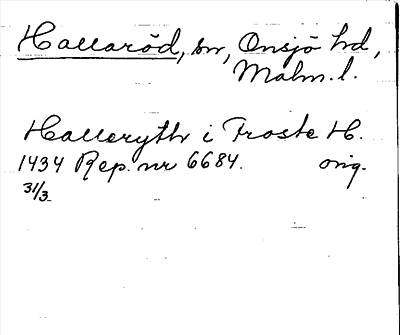 Hallaröd, sn, Onsjö hd,
Malm. l.
Halleryth i Froste H.
1434 Rep. nr 6684. orig.
31/3